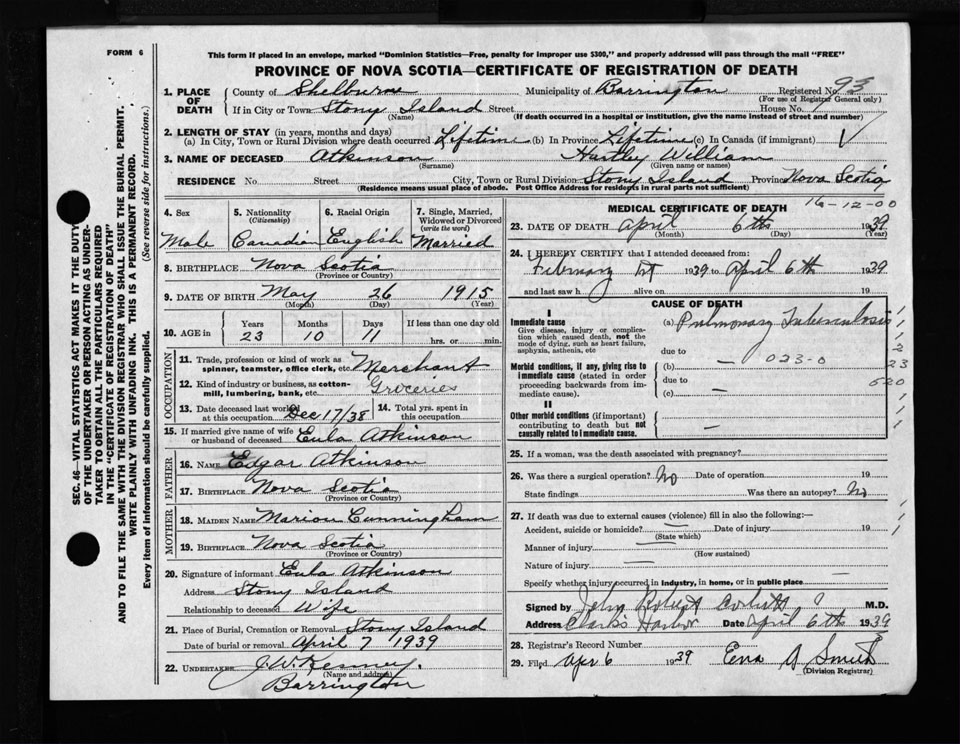 FORM 6
This form if placed in an envelope, marked "Dominion Statistics—Free, penalty for improper use $300," and properly addressed will pass through the mail "FREE"
PROVINCE OF NOVA SCOTIA—CERTIFICATE OF REGISTRATION OF DEATH
1. PLACE OF DEATH County of Shelburne Municipality of Barrington Registered No. 93
(For use of Registrar General only)
If in City or Town Stony Island Street House No.
(Name) (If death occurred in a hospital or institution, give the name instead of street and number)
2. LENGTH OF STAY (in years, months and days)
(a) In City, Town or Rural Division where death occurred Lifetime (b) In Province Lifetime (c) In Canada (if immigrant)
3. NAME OF DECEASED Atkinson Hartley William
(Surname) (Given name or names)
RESIDENCE No. Street City, Town or Rural Division Stony Island Province Nova Scotia
(Residence means usual place of abode. Post Office Address for residents in rural parts not sufficient)
4. Sex 5. Nationality (Citizenship) 6. Racial Origin 7. Single, Married, Widowed or Divorced (write the word)
Male Canadian English Married
8. BIRTHPLACE Nova Scotia
(Province or Country)
9. DATE OF BIRTH May 26 1915
(Month) (Day) (Year)
10. AGE in Years Months Days If less than one day old
23 10 11 hrs. or min.
OCCUPATION
11. Trade, profession or kind of work as spinner, teamster, office clerk, etc. Merchant
12. Kind of industry or business, as cotton-mill, lumbering, bank, etc. Groceries
13. Date deceased last worked at this occupation Dec 17/38 14. Total yrs. spent in this occupation
15. If married give name of wife or husband of deceased Eula Atkinson
FATHER
16. NAME Edgar Atkinson
17. BIRTHPLACE Nova Scotia
(Province or Country)
MOTHER
18. MAIDEN NAME Marion Cunningham
19. BIRTHPLACE Nova Scotia
(Province or Country)
20. Signature of informant Eula Atkinson
Address Stony Island
Relationship to deceased Wife
21. Place of Burial, Cremation or Removal Stony Island
Date of burial or removal April 7 1939
22. UNDERTAKER J. W. Kenney.
(Name and address)
Barrington
16-12-00
MEDICAL CERTIFICATE OF DEATH
23. DATE OF DEATH April 6th 1939
(Month) (Day) (Year)
24. I HEREBY CERTIFY that I attended deceased from:
February 1st 1939 to April 6th 1939
and last saw h alive on 19
CAUSE OF DEATH
I
Immediate cause (a) Pulmonary Tuberculosis
Give disease, injury or complication which caused death, not the mode of dying, such as heart failure, asphyxia, asthenia, etc
due to
Morbid conditions, if any, giving rise to immediate cause (stated in order proceeding backwards from immediate cause). (b) — 023-0
due to
(c) —
23
520
II
Other morbid conditions (if important) contributing to death but not causally related to immediate cause. —
25. If a woman, was the death associated with pregnancy?
26. Was there a surgical operation? No Date of operation 19
State findings Was there an autopsy? No
27. If death was due to external causes (violence) fill in also the following:—
Accident, suicide or homicide? — Date of injury 19
(State which)
Manner of injury —
(How sustained)
Nature of injury —
Specify whether injury occurred in industry, in home, or in public place
Signed by John Robert Corbett M.D.
Address Clarks Harbor Date April 6th 1939
28. Registrar's Record Number
29. Filed Apr 6 1939 Ena A Smith
(Division Registrar)
SEC. 46—VITAL STATISTICS ACT MAKES IT THE DUTY
OF THE UNDERTAKER OR PERSON ACTING AS UNDER-
TAKER TO OBTAIN ALL THE PARTICULARS REQUIRED
IN THE "CERTIFICATE OF REGISTRATION OF DEATH"
AND TO FILE THE SAME WITH THE DIVISION REGISTRAR WHO SHALL ISSUE THE BURIAL PERMIT.
WRITE PLAINLY WITH UNFADING INK. THIS IS A PERMANENT RECORD.
Every item of information should be carefully supplied. (See reverse side for instructions.)